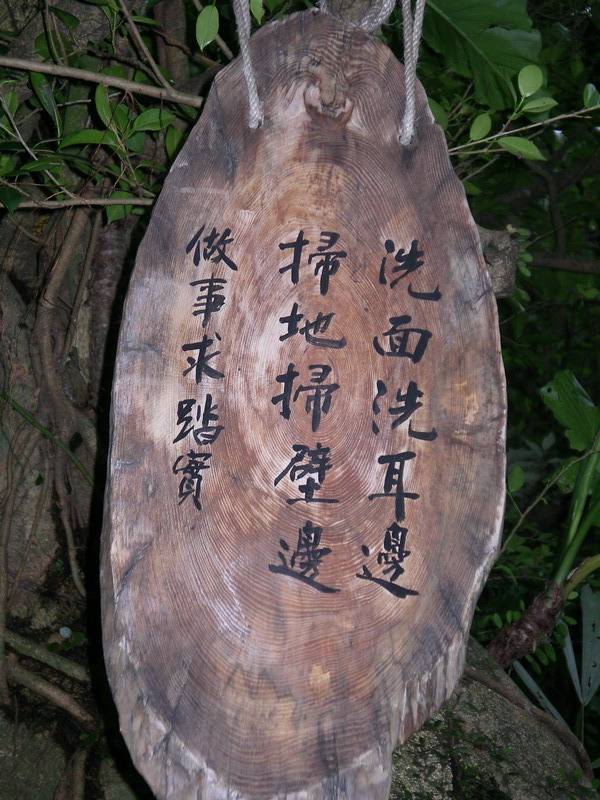 洗面洗耳邊
掃地掃壁邊
做事求踏實